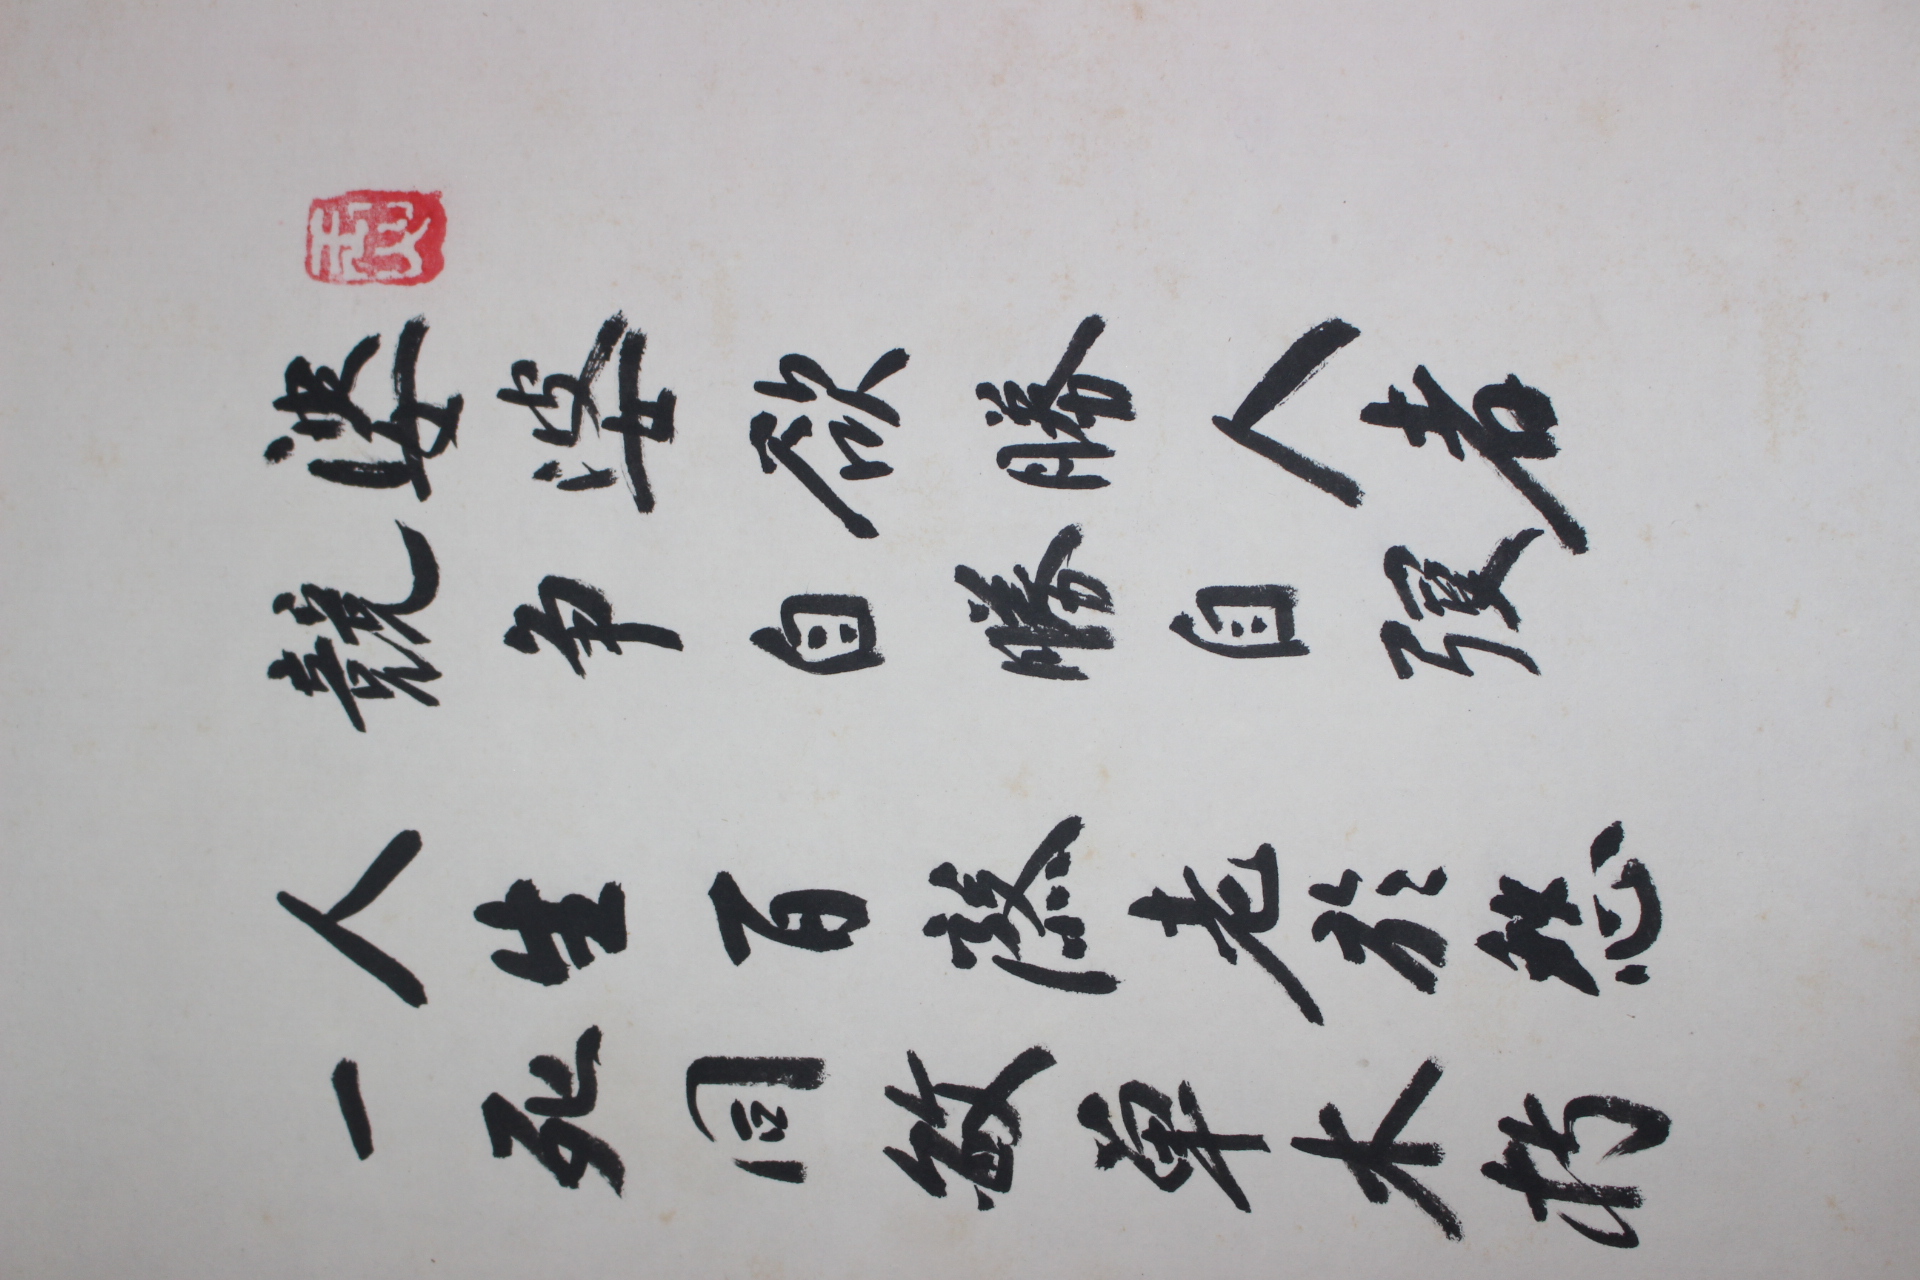 婆婆欲勝人者
競争自勝自强
人生百熬老於愁
一死同敏草木朽